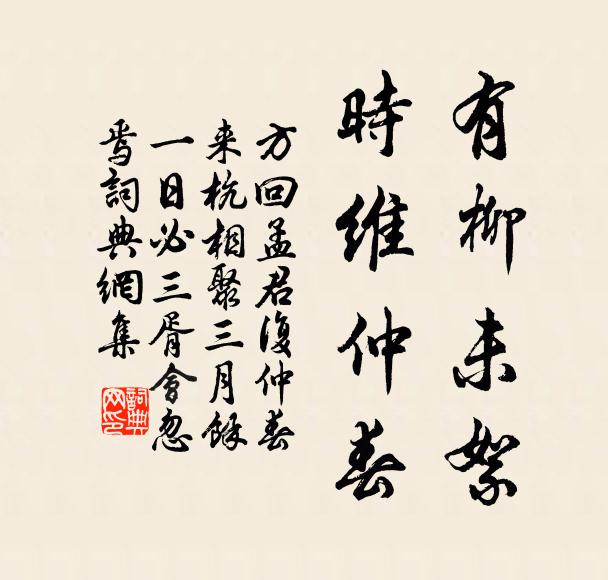 有柳未絮
時維仲春
方回孟君復仲春
来杭相聚三月餘
一日必三胥會忽
焉詞典網集
詞典
网印